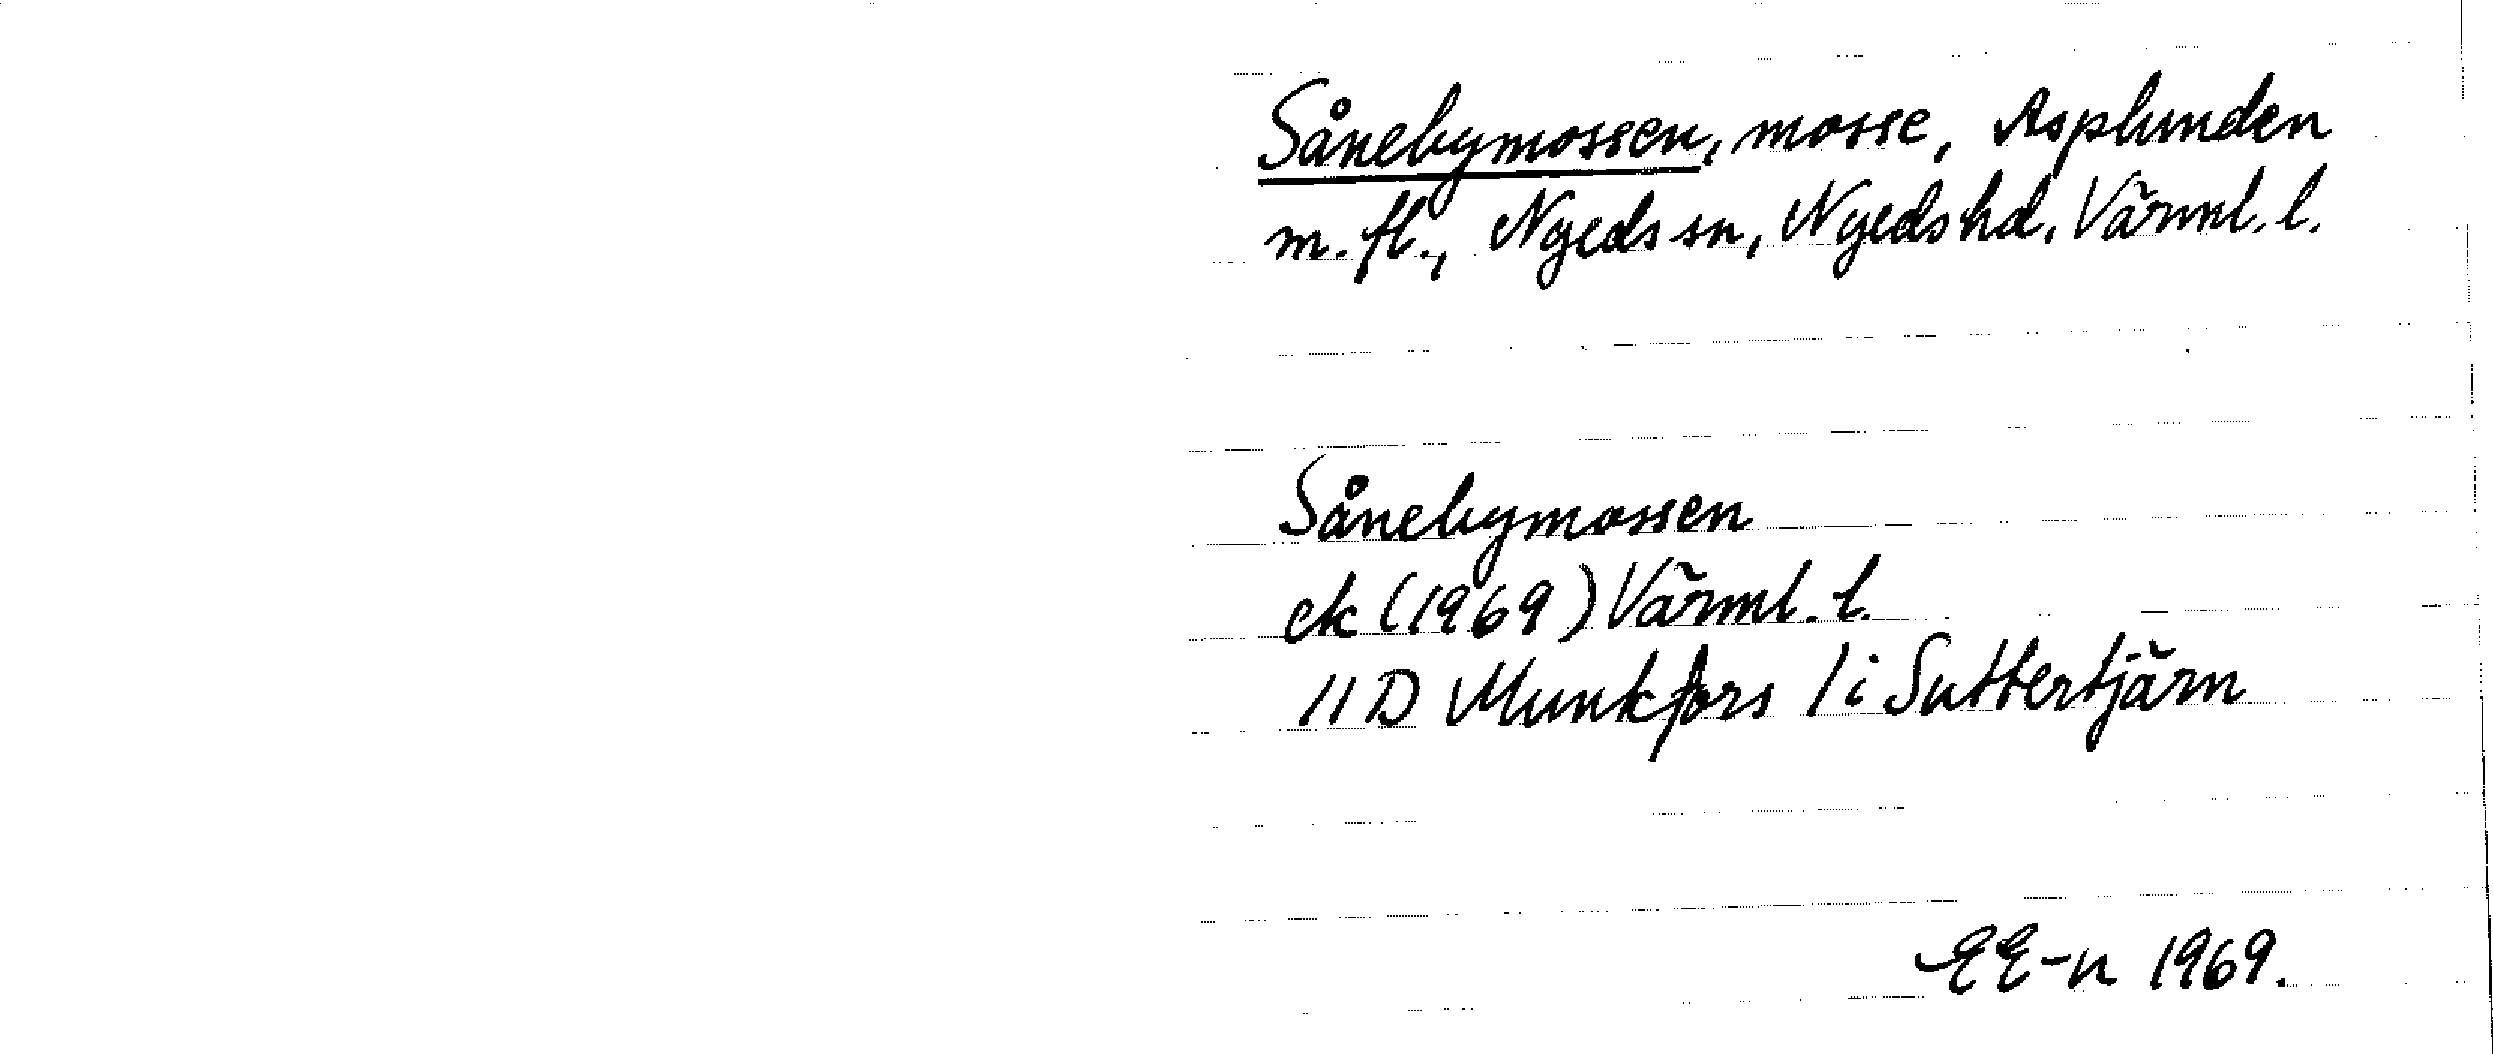 Sånebymossen, mosse, Asplunden
m. fl., Nyeds sn, Nyeds hd, Värml. l.
Sånebymossen
ek (1969) Värml. l.
11 D Munkfors 1i Suttertjärn
EE-n 1969.